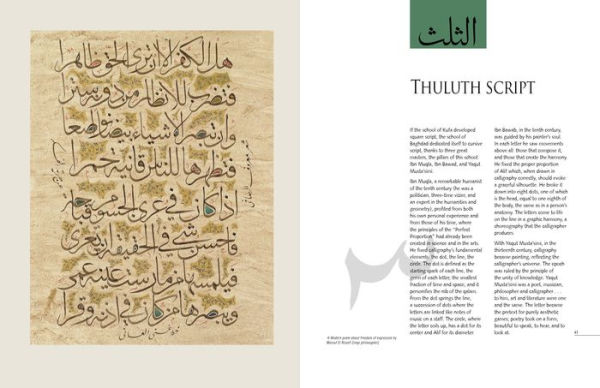 هل الكفر إلا أن ترى الحق ظاهرا
فتضرب للأنظار من دونه سترا
وأن تبصر الأشياء بيضا نواصعا
فتظهرها للناس قانية حمرا
إذا كان في عري الجسوم
فأحسن شيء في الحقيقة أن تعرى
الثلث
THULUTH SCRIPT
If the school of Kufa developed
square script, the school of
Baghdad dedicated itself to cursive
script, thanks to three great
masters, the pillars of this school:
Ibn Muqla, Ibn Bawab, and Yaqut
Musta'simi.
Ibn Muqla, a remarkable humanist
of the tenth century (he was a
politician, three-time vizier, and
an expert in the humanities and
geometry), profited from both
his own personal experience and
from those of his time, where
the principles of the "Perfect
Proportion" had already been
created in science and in the arts.
He fixed calligraphy's fundamental
elements: the dot, the line, the
circle. The dot is defined as the
starting spark of each line, the
germ of each letter, the smallest
fraction of time and space, and it
personifies the nib of the qalam.
From the dot springs the line,
a succession of dots where the
letters are linked like notes of
music on a staff. The circle, where
the letter coils up, has a dot for its
center and Alif for its diameter.
Ibn Bawab, in the tenth century,
was guided by his painter's soul.
In each letter he saw movements
above all: those that compose it,
and those that create the harmony.
He fixed the proper proportion
of Alif which, when drawn in
calligraphy correctly, should evoke
a graceful silhouette. He broke it
down into eight dots, one of which
is the head, equal to one eighth of
the body, the same as in a person's
anatomy. The letters come to life
on the line in a graphic harmony, a
choreography that the calligrapher
produces.
With Yaqut Musta'simi, in the
thirteenth century, calligraphy
became painting, reflecting the
calligrapher's universe. The epoch
was ruled by the principle of
the unity of knowledge. Yaqut
Musta'simi was a poet, musician,
philosopher and calligrapher . . .
to him, art and literature were one
and the same. The letter became
the pretext for purely aesthetic
games; poetry took on a form,
beautiful to speak, to hear, and to
look at.
Modern poem about freedom of expression by
Marouf El Rosafi (Iraqi philosopher)